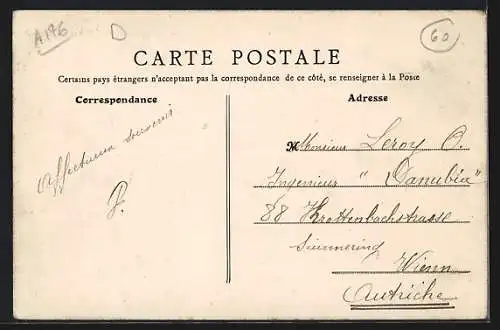 A176
D
60
CARTE POSTALE
Certains pays étrangers n'acceptant pas la correspondance de ce côté, se renseigner à la Poste
Correspondance
Adresse
Affectueux souvenir
Monsieur Leroy O.
Ingenieur "Danubia"
88 Krottenbachstrasse
Simmering
Wien
Autriche